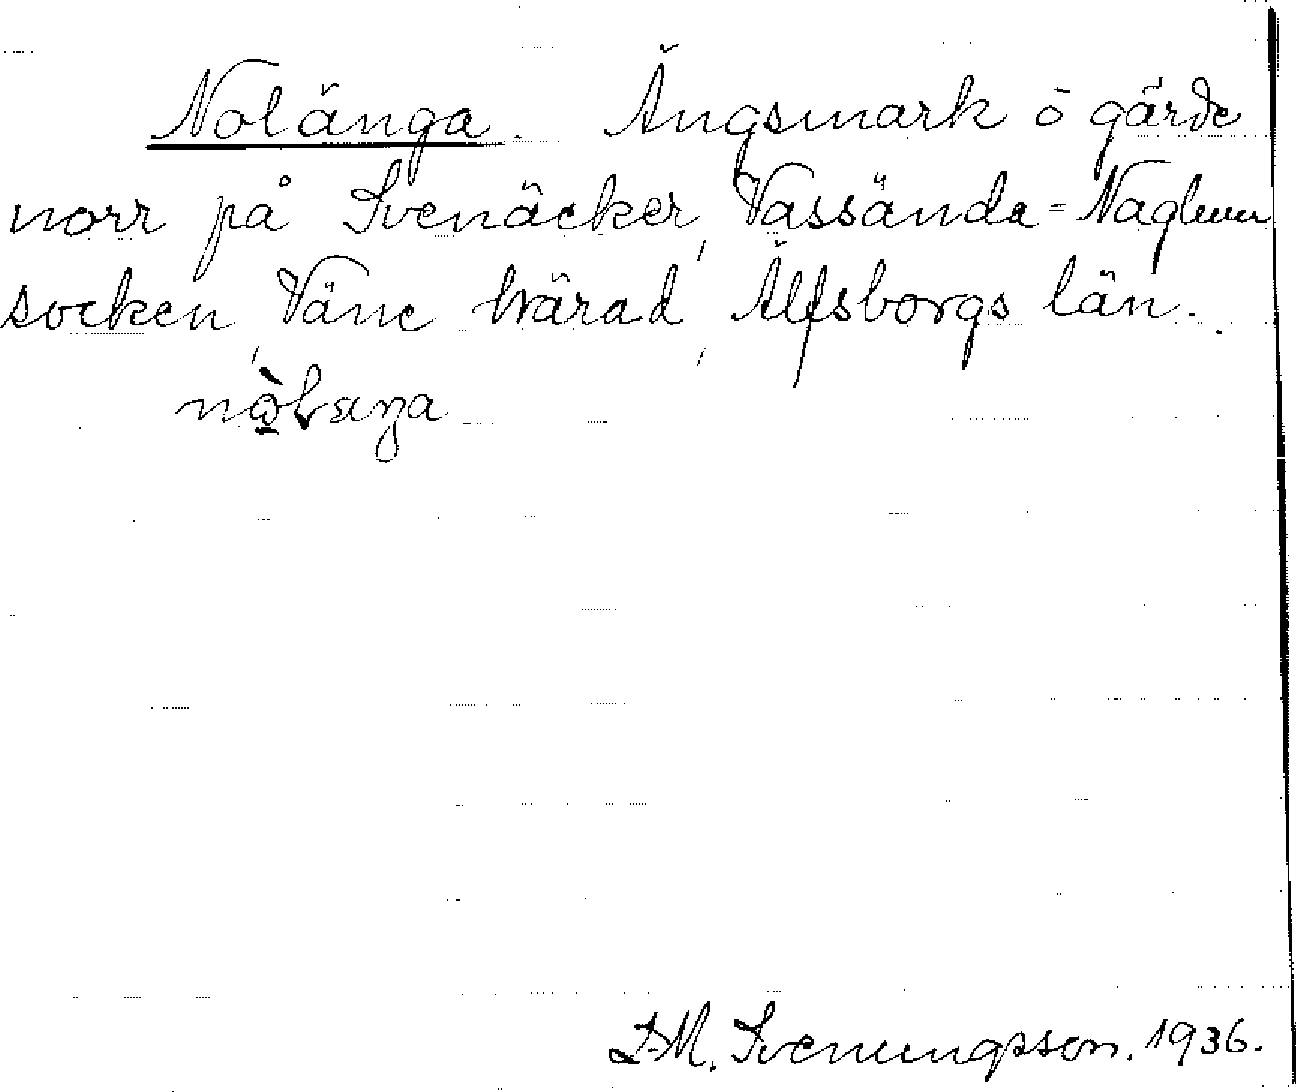 Nolänga. Ängsmark o gärde
norr på Svenäcker, Vassända=Naglum
socken, Väne härad, Älfsborgs län.
nòlæŋa
D.M. Svenungsson. 1936.